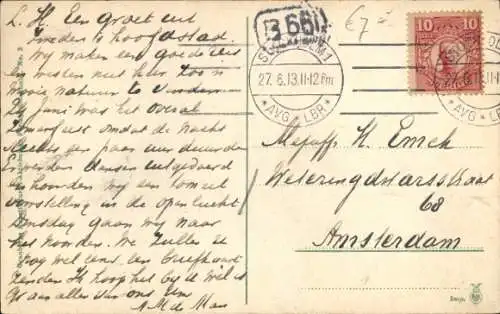 L. H. Een groet uit
Zwedens hoofdstad.
Wij maken een goede reis
en wisten niet hier zoo'n
mooie natuur te vinden
24 Juni was het overal
Zomerfeest omdat de nacht
slechts een paar uur duurde
er werden dansen uitgevoerd
en hoorden wij een
voorstelling in de open lucht
Dinsdag gaan wij naar
het noorden. We zullen U
nog wel eens een briefkaart
zenden. Ik hoop het bij U wel is
Gr. aan allen van ons
A M de Man
B 661
€ 7
STOCKHOLM 1
27. 6. 13. 11-12 Fm
* AVG LBR *
10
27. 6. 13. 11-
* AVG LBR
Mejuff. H. Emck
Weteringdwarsstraat
68
Amsterdam